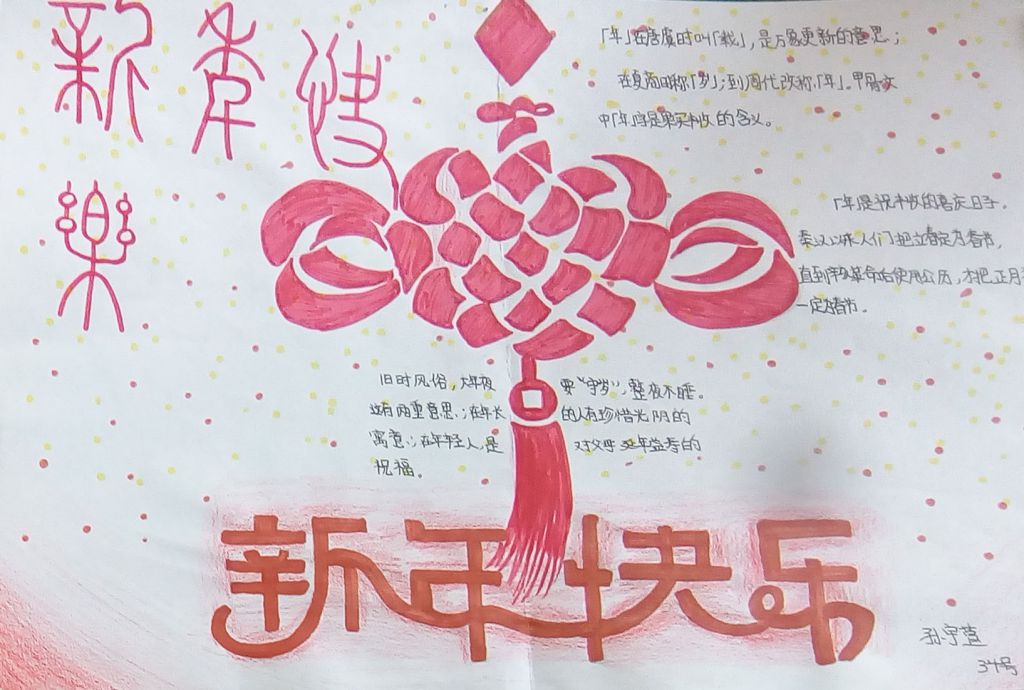 新年快
樂
「年」在唐虞时叫「载」，是万象更新的意思；
在夏商时称「岁」；到周代改称「年」。甲骨文
中「年」字是果实丰收的含义。
「年」是祝丰收的喜庆日子。
秦汉以来人们把立春定为春节，
直到辛亥革命后使用公历，才把正月
一定为春节。
旧时风俗，大年夜要“守岁”，整夜不睡。
这有两重意思：在年长的人有珍惜光阴的
寓意；在年轻人，是对父母延年益寿的
祝福。
新年快乐
孙宇萱
34号